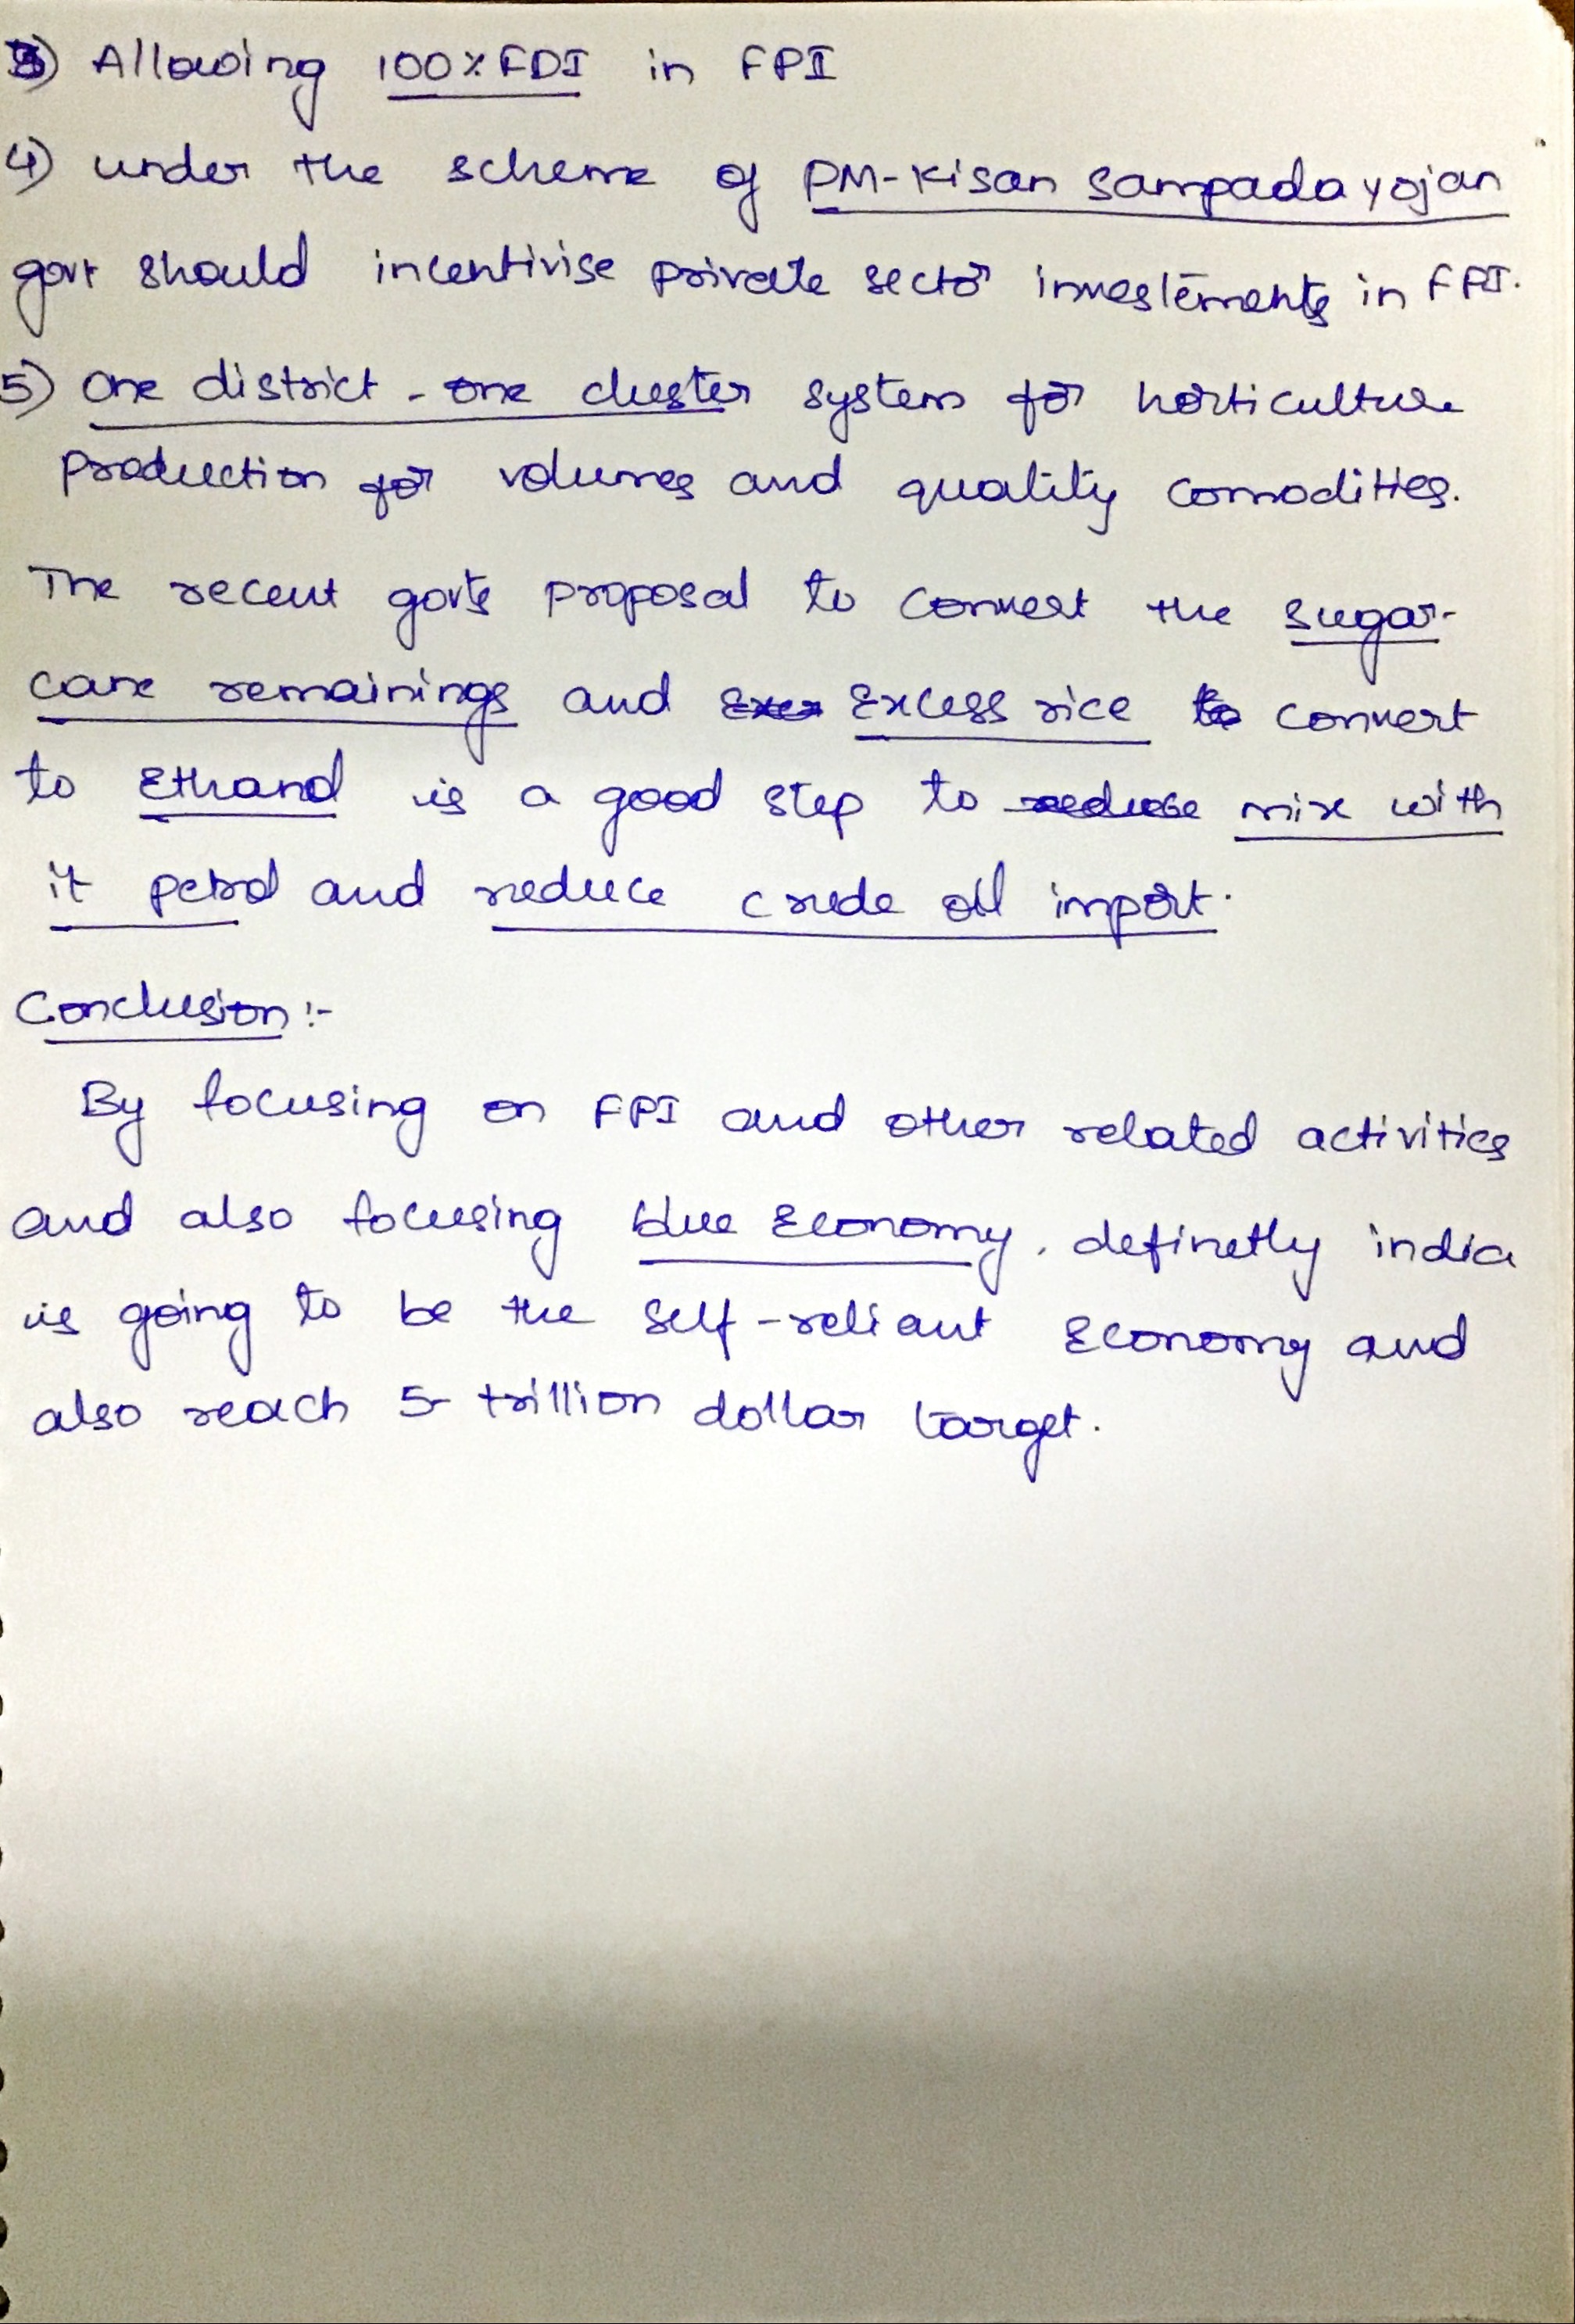 3) Allowing 100% FDI in FPI
4) under the scheme of PM-Kisan Sampada yojan
govt should incentivise private sector investements in FPI.
5) One district - one cluster system for horticulture
production for volumes and quality comodities.
The recent govt's proposal to convert the sugar-
cane remainings and Excess rice to convert
to Ethanol is a good step to reduce mix with
it petrol and reduce crude oil import.
Conclusion :-
By focusing on FPI and other related activities
and also focusing blue Economy, definetly india
is going to be the self-reliant Economy and
also reach 5 trillion dollar target.